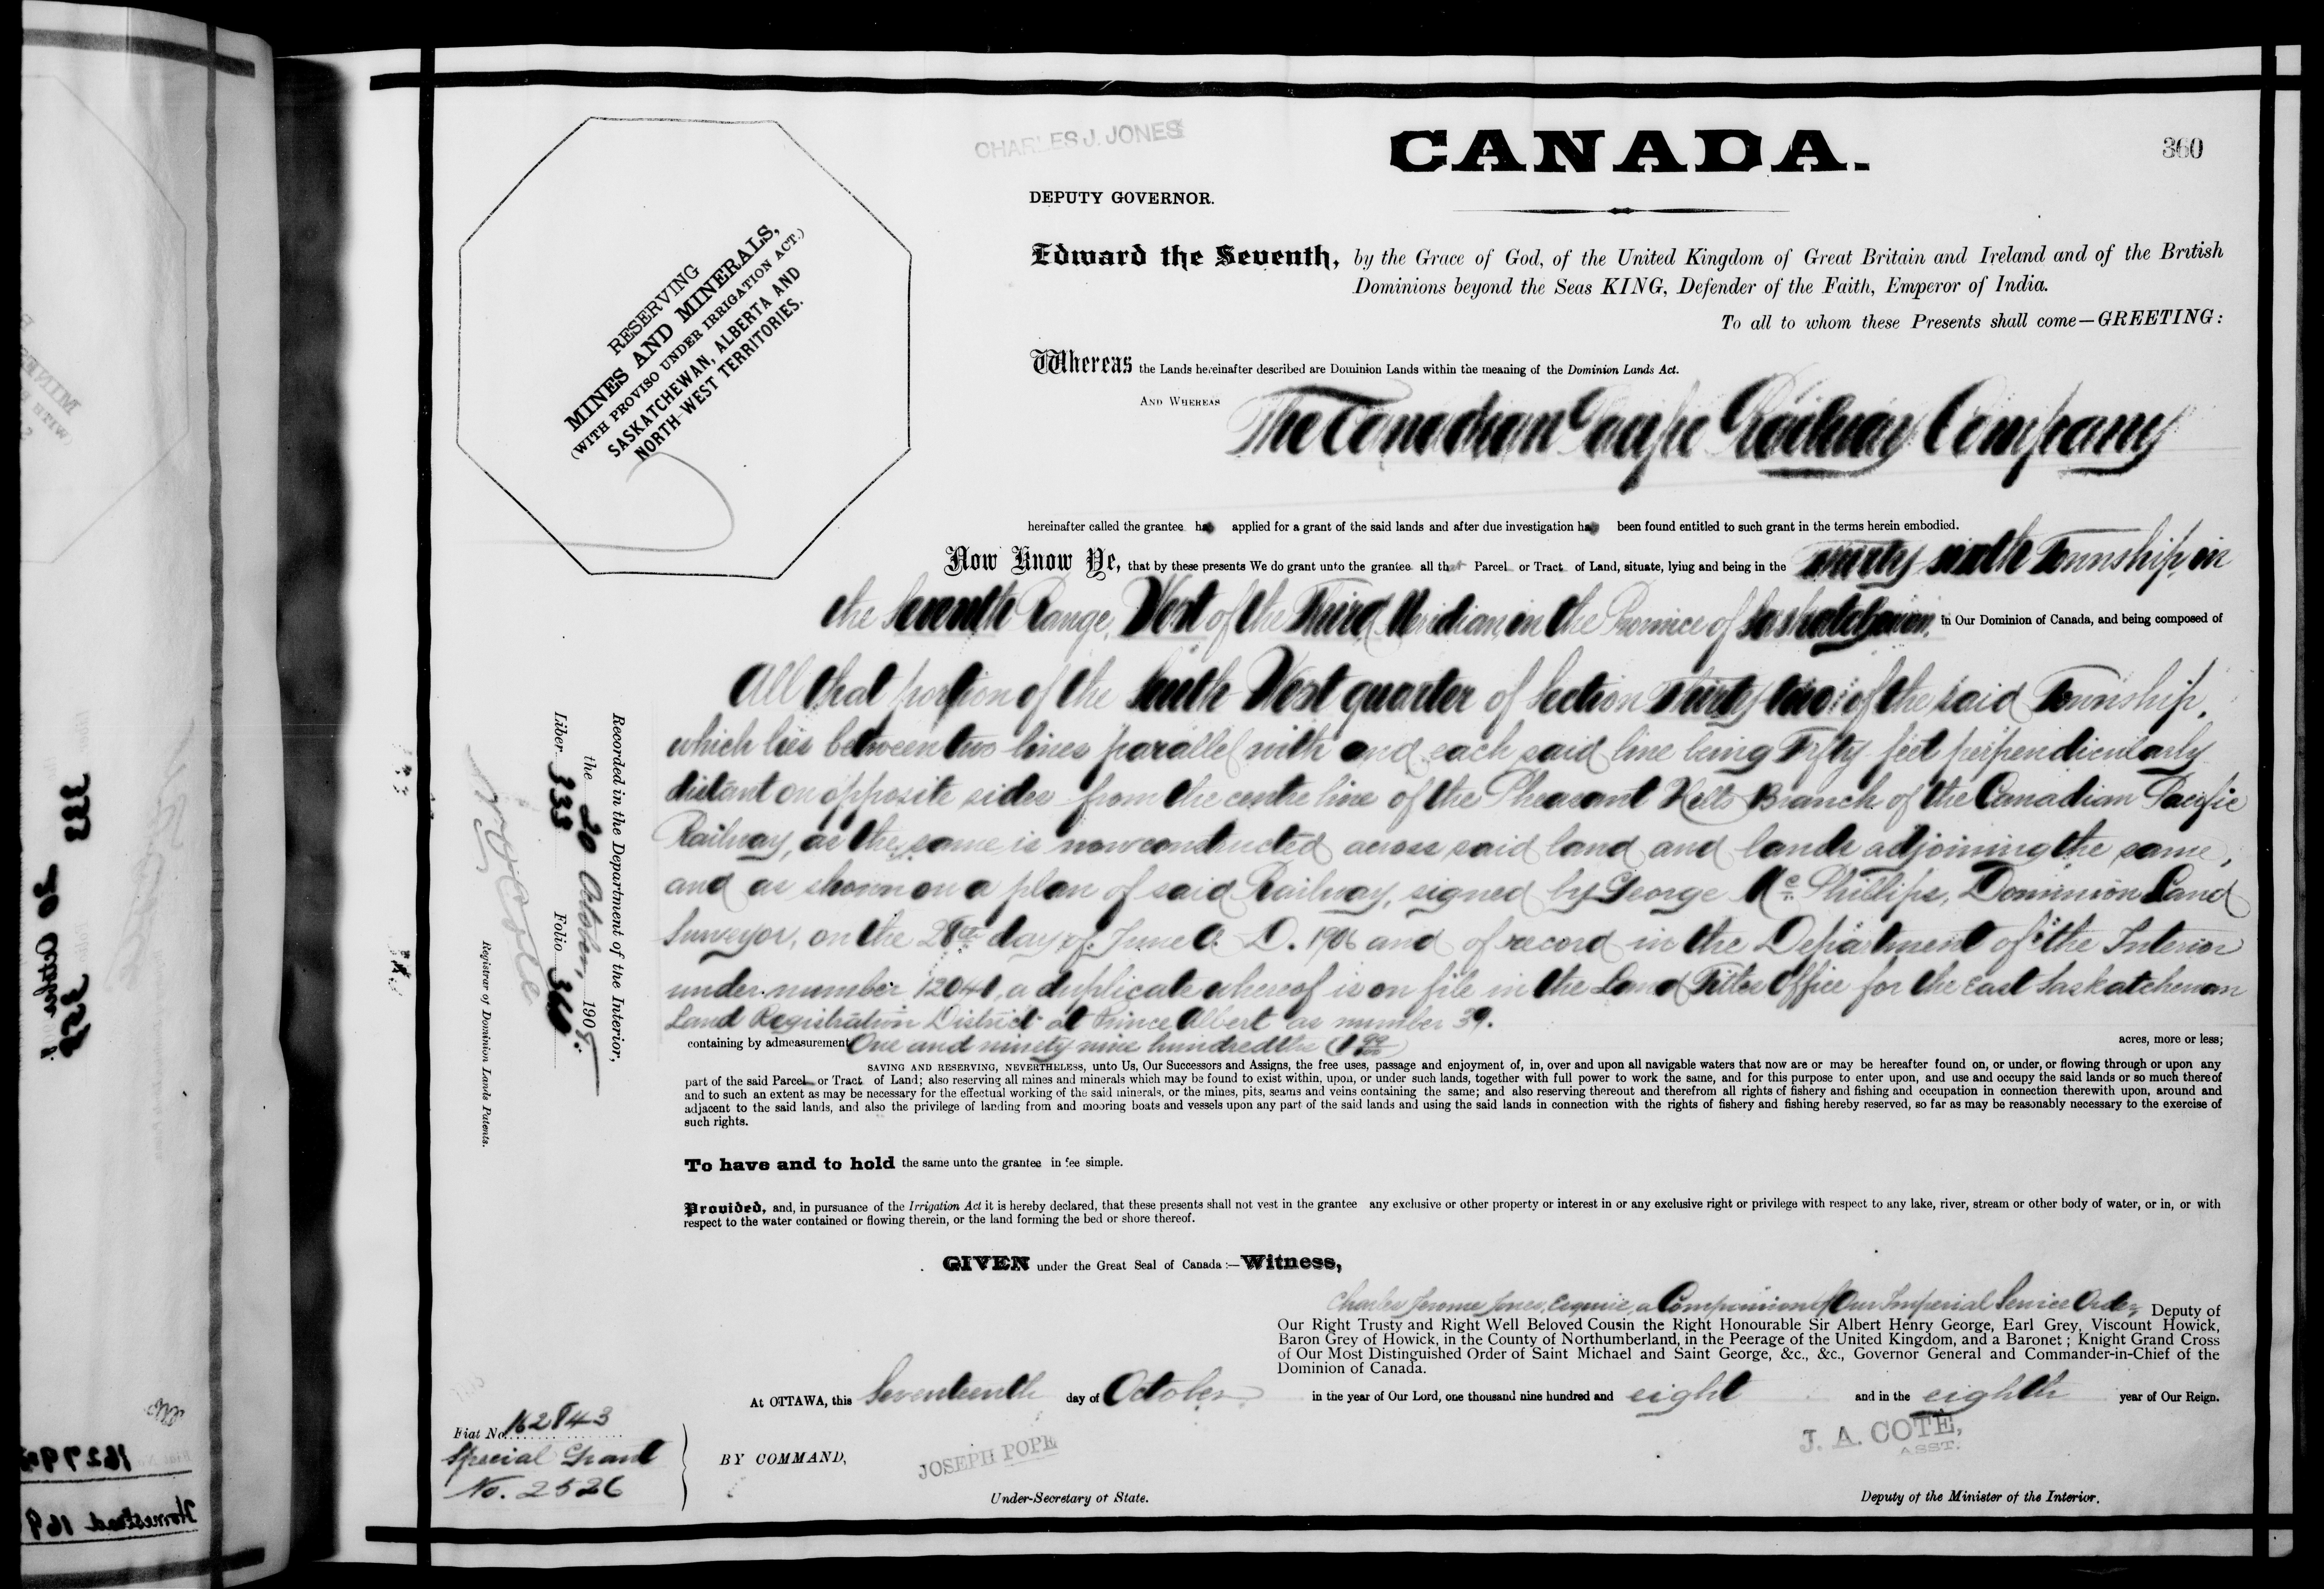 CHARLES J. JONES
CANADA.
360
DEPUTY GOVERNOR.
Edward the Seventh, by the Grace of God, of the United Kingdom of Great Britain and Ireland and of the British
Dominions beyond the Seas KING, Defender of the Faith, Emperor of India.
To all to whom these Presents shall come—GREETING:
RESERVING
MINES AND MINERALS,
(WITH PROVISO UNDER IRRIGATION ACT.)
SASKATCHEWAN, ALBERTA AND
NORTH-WEST TERRITORIES.
Whereas the Lands hereinafter described are Dominion Lands within the meaning of the Dominion Lands Act.
AND WHEREAS The Canadian Pacific Railway Company
hereinafter called the grantee has applied for a grant of the said lands and after due investigation has been found entitled to such grant in the terms herein embodied.
Now Know Ye, that by these presents We do grant unto the grantee all that Parcel or Tract of Land, situate, lying and being in the Township in
the Seventh Range, West of the Third Meridian, in the Province of Saskatchewan, in Our Dominion of Canada, and being composed of
All that portion of the South West quarter of Section Thirty-two: of the said Township,
which lies between two lines parallel with and each said line being Fifty feet perpendicularly
distant on opposite sides from the centre line of the Pheasant Hills Branch of the Canadian Pacific
Railway, as the same is now constructed across said land and lands adjoining the same,
and as shown on a plan of said Railway, signed by George Mc. Phillips, Dominion Land
Surveyor, on the 28th day of June A. D. 1906 and of record in the Department of the Interior
under number 12040, a duplicate whereof is on file in the Land Titles Office for the East Saskatchewan
Land Registration District at Prince Albert as number 39.
containing by admeasurement One and ninety nine hundredths (1 99/100) acres, more or less;
SAVING AND RESERVING, NEVERTHELESS, unto Us, Our Successors and Assigns, the free uses, passage and enjoyment of, in, over and upon all navigable waters that now are or may be hereafter found on, or under, or flowing through or upon any
part of the said Parcel or Tract of Land; also reserving all mines and minerals which may be found to exist within, upon, or under such lands, together with full power to work the same, and for this purpose to enter upon, and use and occupy the said lands or so much thereof
and to such an extent as may be necessary for the effectual working of the said minerals, or the mines, pits, seams and veins containing the same; and also reserving thereout and therefrom all rights of fishery and fishing and occupation in connection therewith upon, around and
adjacent to the said lands, and also the privilege of landing from and mooring boats and vessels upon any part of the said lands and using the said lands in connection with the rights of fishery and fishing hereby reserved, so far as may be reasonably necessary to the exercise of
such rights.
To have and to hold the same unto the grantee in fee simple.
Provided, and, in pursuance of the Irrigation Act it is hereby declared, that these presents shall not vest in the grantee any exclusive or other property or interest in or any exclusive right or privilege with respect to any lake, river, stream or other body of water, or in, or with
respect to the water contained or flowing therein, or the land forming the bed or shore thereof.
GIVEN under the Great Seal of Canada:—Witness,
Charles Jerome Jones, Esquire, a Companion of Our Imperial Service Order, Deputy of
Our Right Trusty and Right Well Beloved Cousin the Right Honourable Sir Albert Henry George, Earl Grey, Viscount Howick,
Baron Grey of Howick, in the County of Northumberland, in the Peerage of the United Kingdom, and a Baronet; Knight Grand Cross
of Our Most Distinguished Order of Saint Michael and Saint George, &c., &c., Governor General and Commander-in-Chief of the
Dominion of Canada.
At OTTAWA, this Seventeenth day of October in the year of Our Lord, one thousand nine hundred and eight and in the eighth year of Our Reign.
BY COMMAND,
JOSEPH POPE
Under-Secretary of State.
J. A. COTÉ,
ASST.
Deputy of the Minister of the Interior.
Fiat No. 162843
Special Grant
No. 2526
Recorded in the Department of the Interior,
the 20 October, 1908.
Liber 333 Folio 360
Registrar of Dominion Lands Patents.